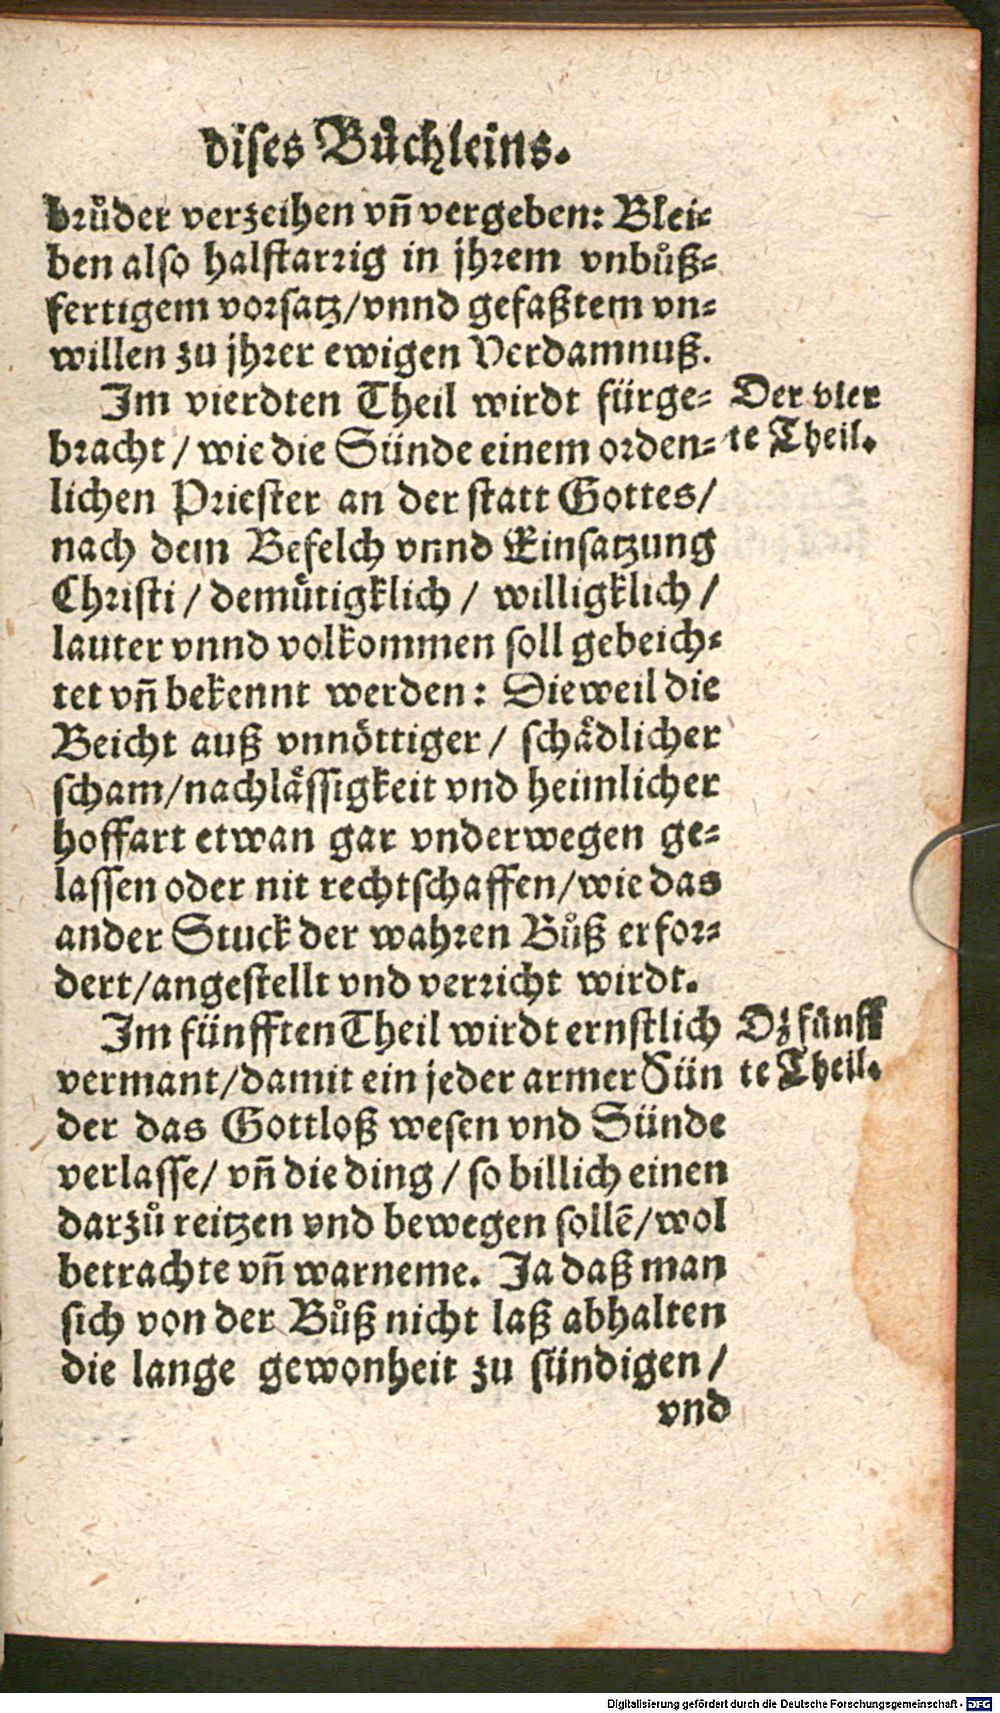 dises Bůchleins.
brůder verzeihen vñ vergeben: Blei-
ben also halstarrig in jhrem vnbůß-
fertigem vorsatz/vnnd gefaßtem vn-
willen zu jhrer ewigen Verdamnuß.
Im vierdten Theil wirdt fürge-
bracht / wie die Sünde einem orden-
lichen Priester an der statt Gottes/
nach dem Befelch vnnd Einsatzung
Christi / demütigklich / willigklich /
lauter vnnd volkommen soll gebeich-
tet vñ bekennt werden: Dieweil die
Beicht auß vnnöttiger / schädlicher
scham/nachlässigkeit vnd heimlicher
hoffart etwan gar vnderwegen ge-
lassen oder nit rechtschaffen/wie das
ander Stuck der wahren Bůß erfor-
dert/angestellt vnd verricht wirdt.
Im fünfften Theil wirdt ernstlich
vermant/damit ein jeder armer Sün
der das Gottloß wesen vnd Sünde
verlasse/ vñ die ding / so billich einen
darzů reitzen vnd bewegen sollẽ/wol
betrachte vñ warneme. Ja daß man
sich von der Bůß nicht laß abhalten
die lange gewonheit zu sündigen /
vnd
Der vier
te Theil.
Dz fünff
te Theil.
Digitalisierung gefördert durch die Deutsche Forschungsgemeinschaft - DFG